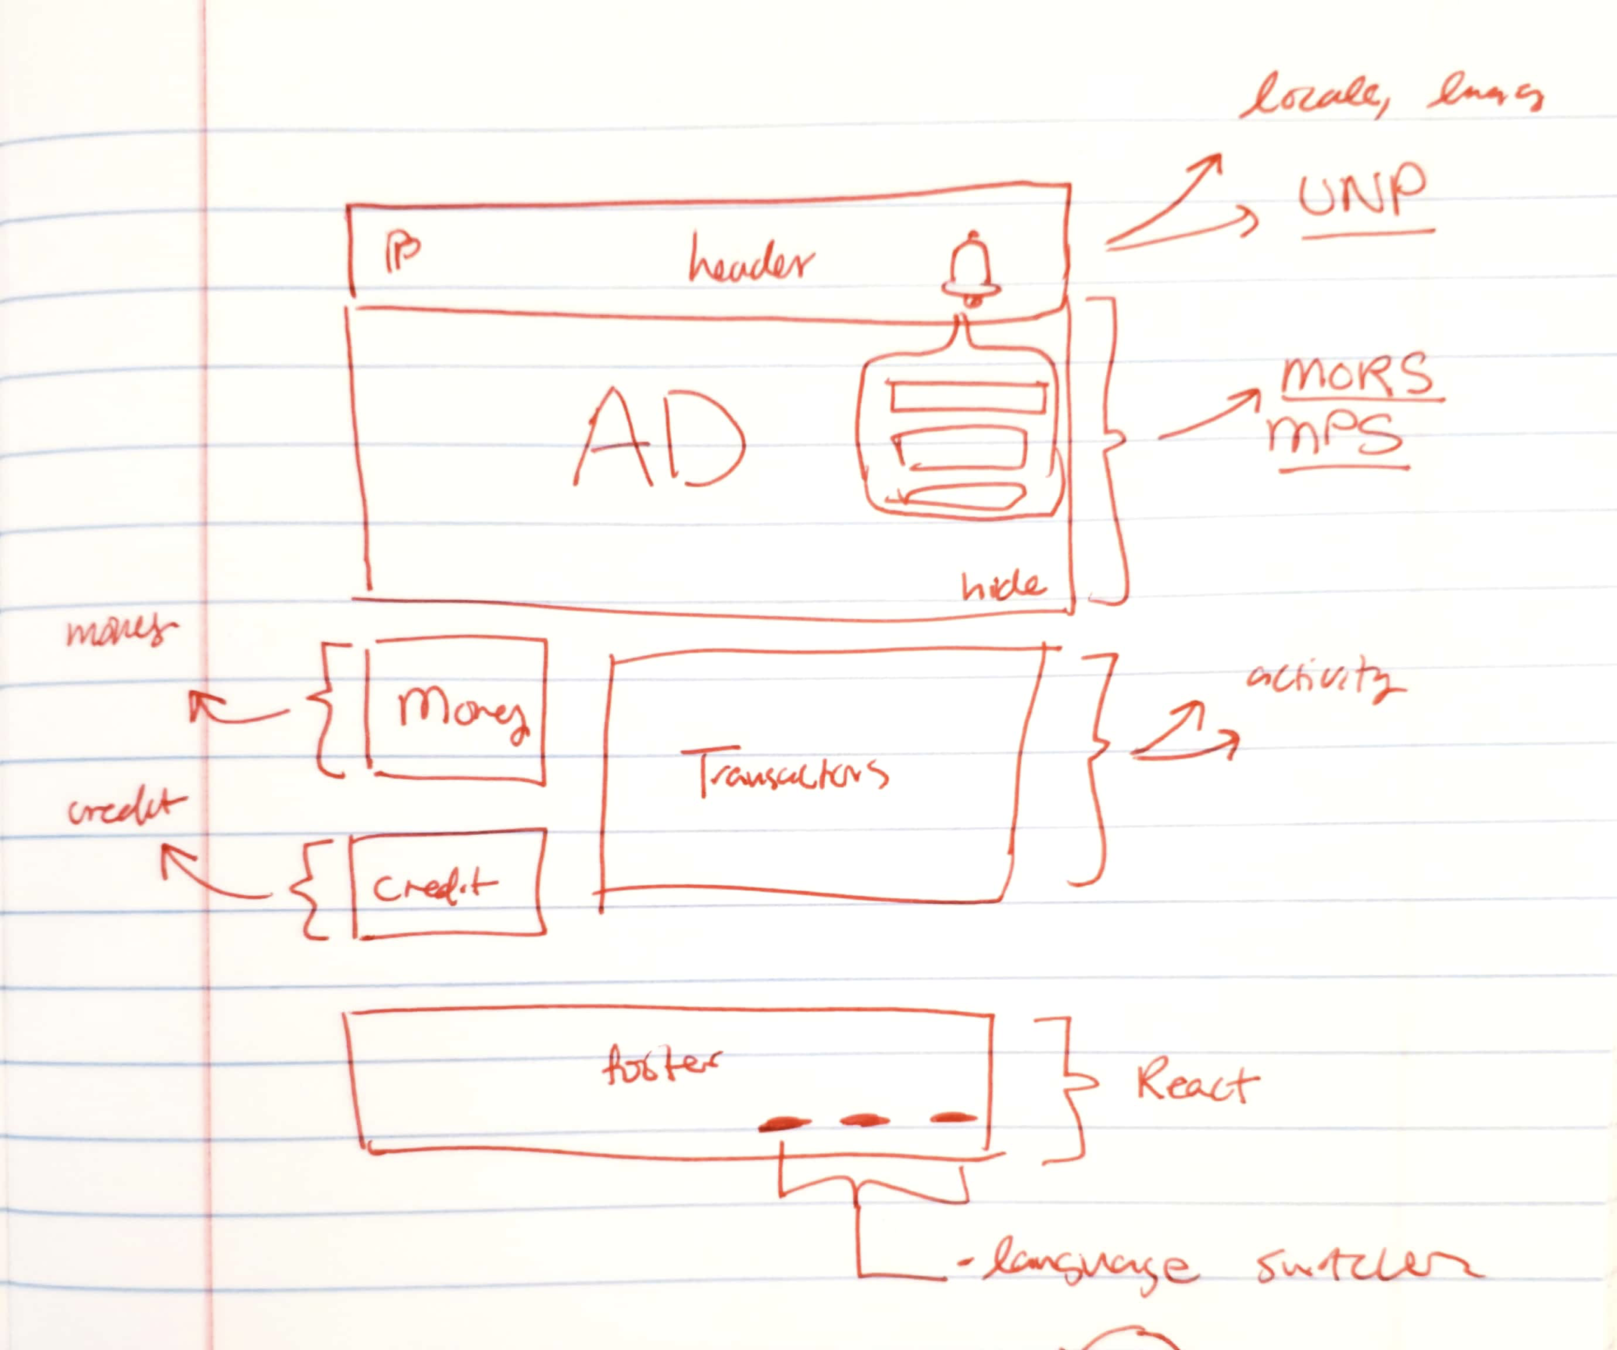 locale, lang
UNP
header
MORS
MPS
AD
hide
money
Money
activity
Transactions
credit
credit
footer
React
- language switcher